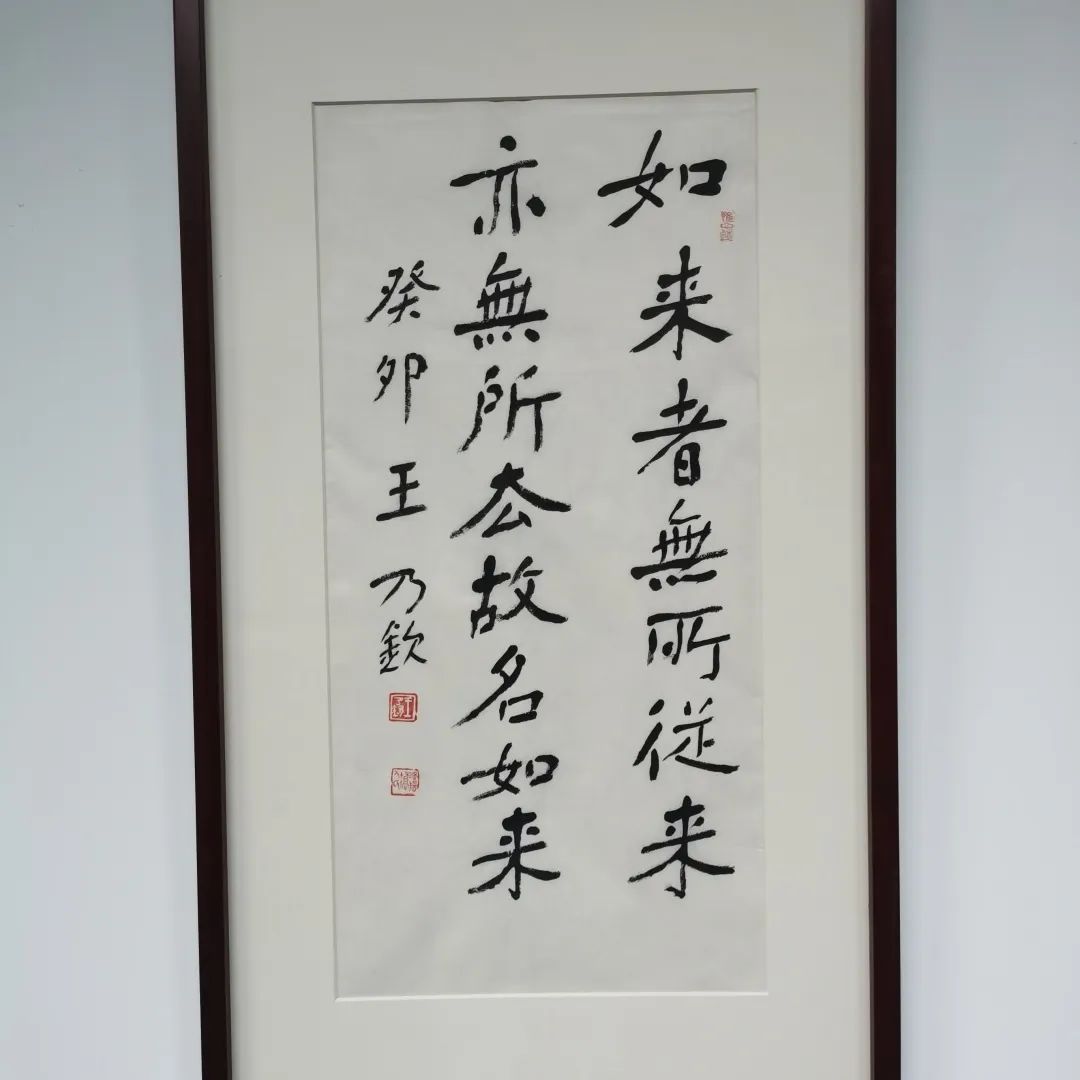 如来者無所従来
亦無所去故名如来
癸卯王乃欽